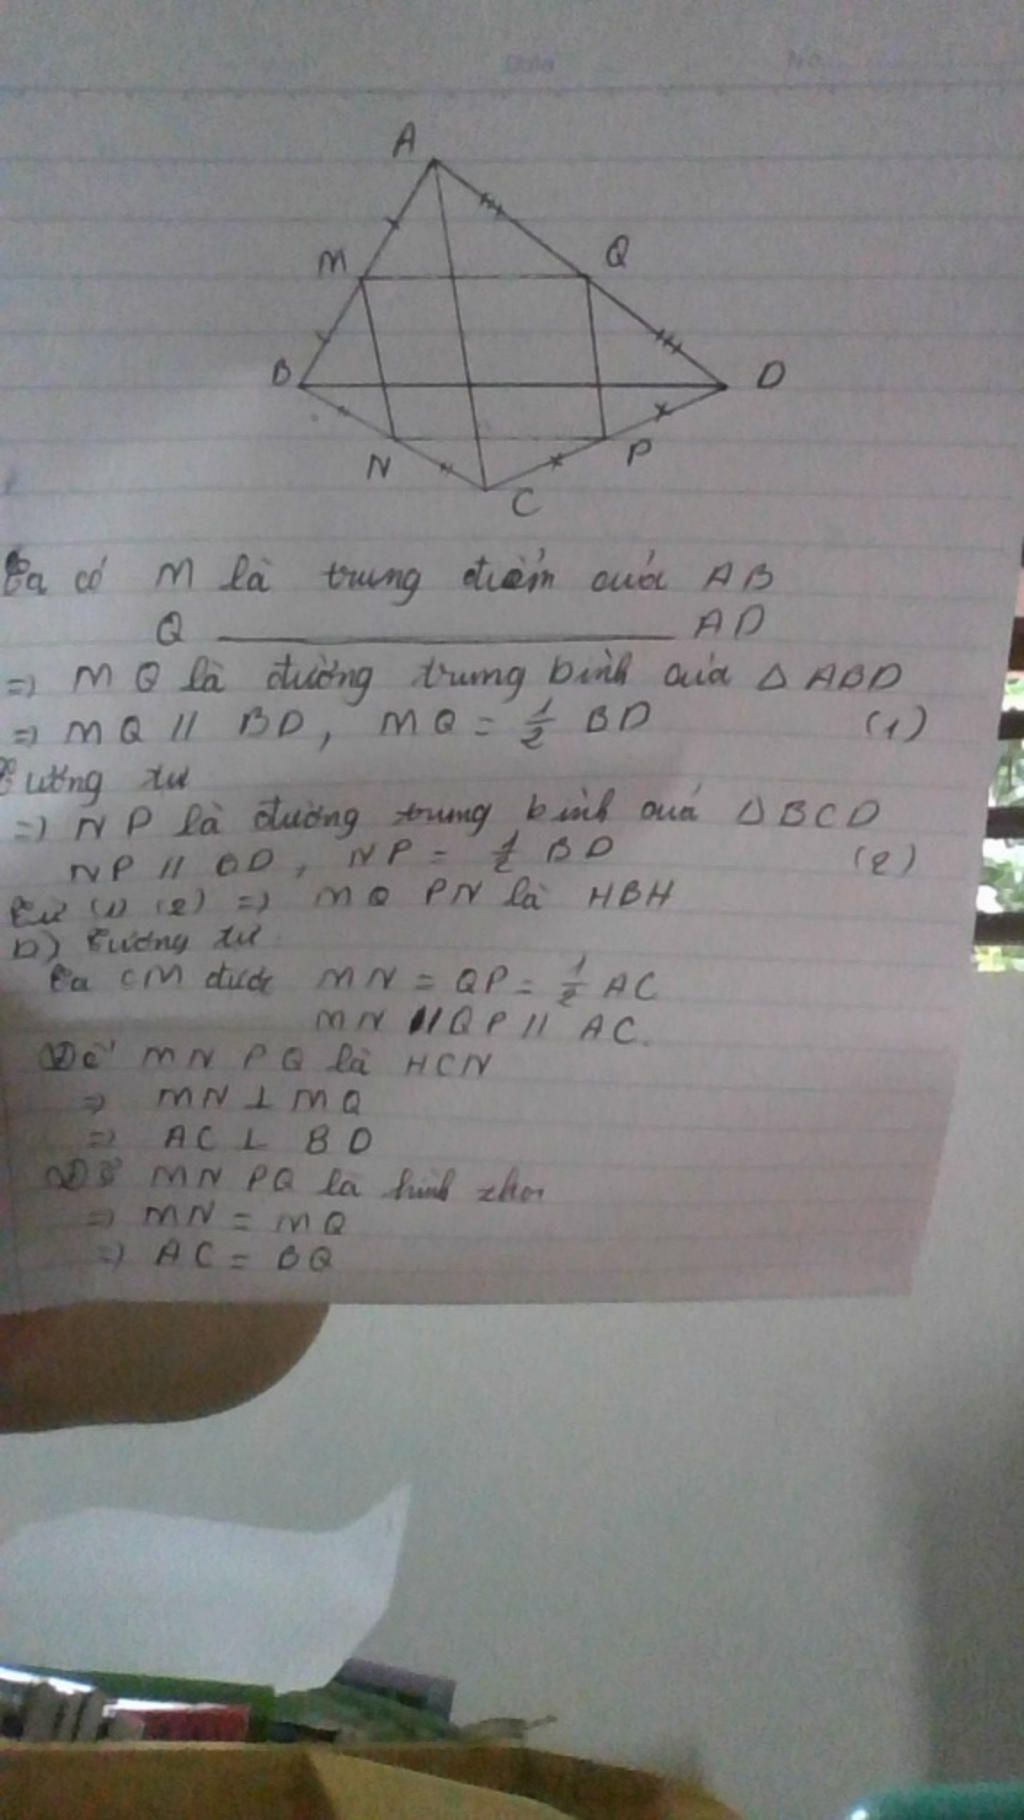 Date
No.
A
M
Q
B
D
N
P
C
Ta có M là trung điểm của AB
Q ———— AD
=> MQ là đường trung bình của Δ ABD
=> MQ // BD, MQ = 1/2 BD (1)
Tương tự
=> NP là đường trung bình của Δ BCD
NP // BD, NP = 1/2 BD (2)
Từ (1) (2) => MQ PN là HBH
b) Tương tự
Ta CM được MN = QP = 1/2 AC
MN // QP // AC.
Để MN PQ là HCN
=> MN ⊥ MQ
=> AC ⊥ BD
Để MN PQ là hình thoi
=> MN = MQ
=> AC = BQ